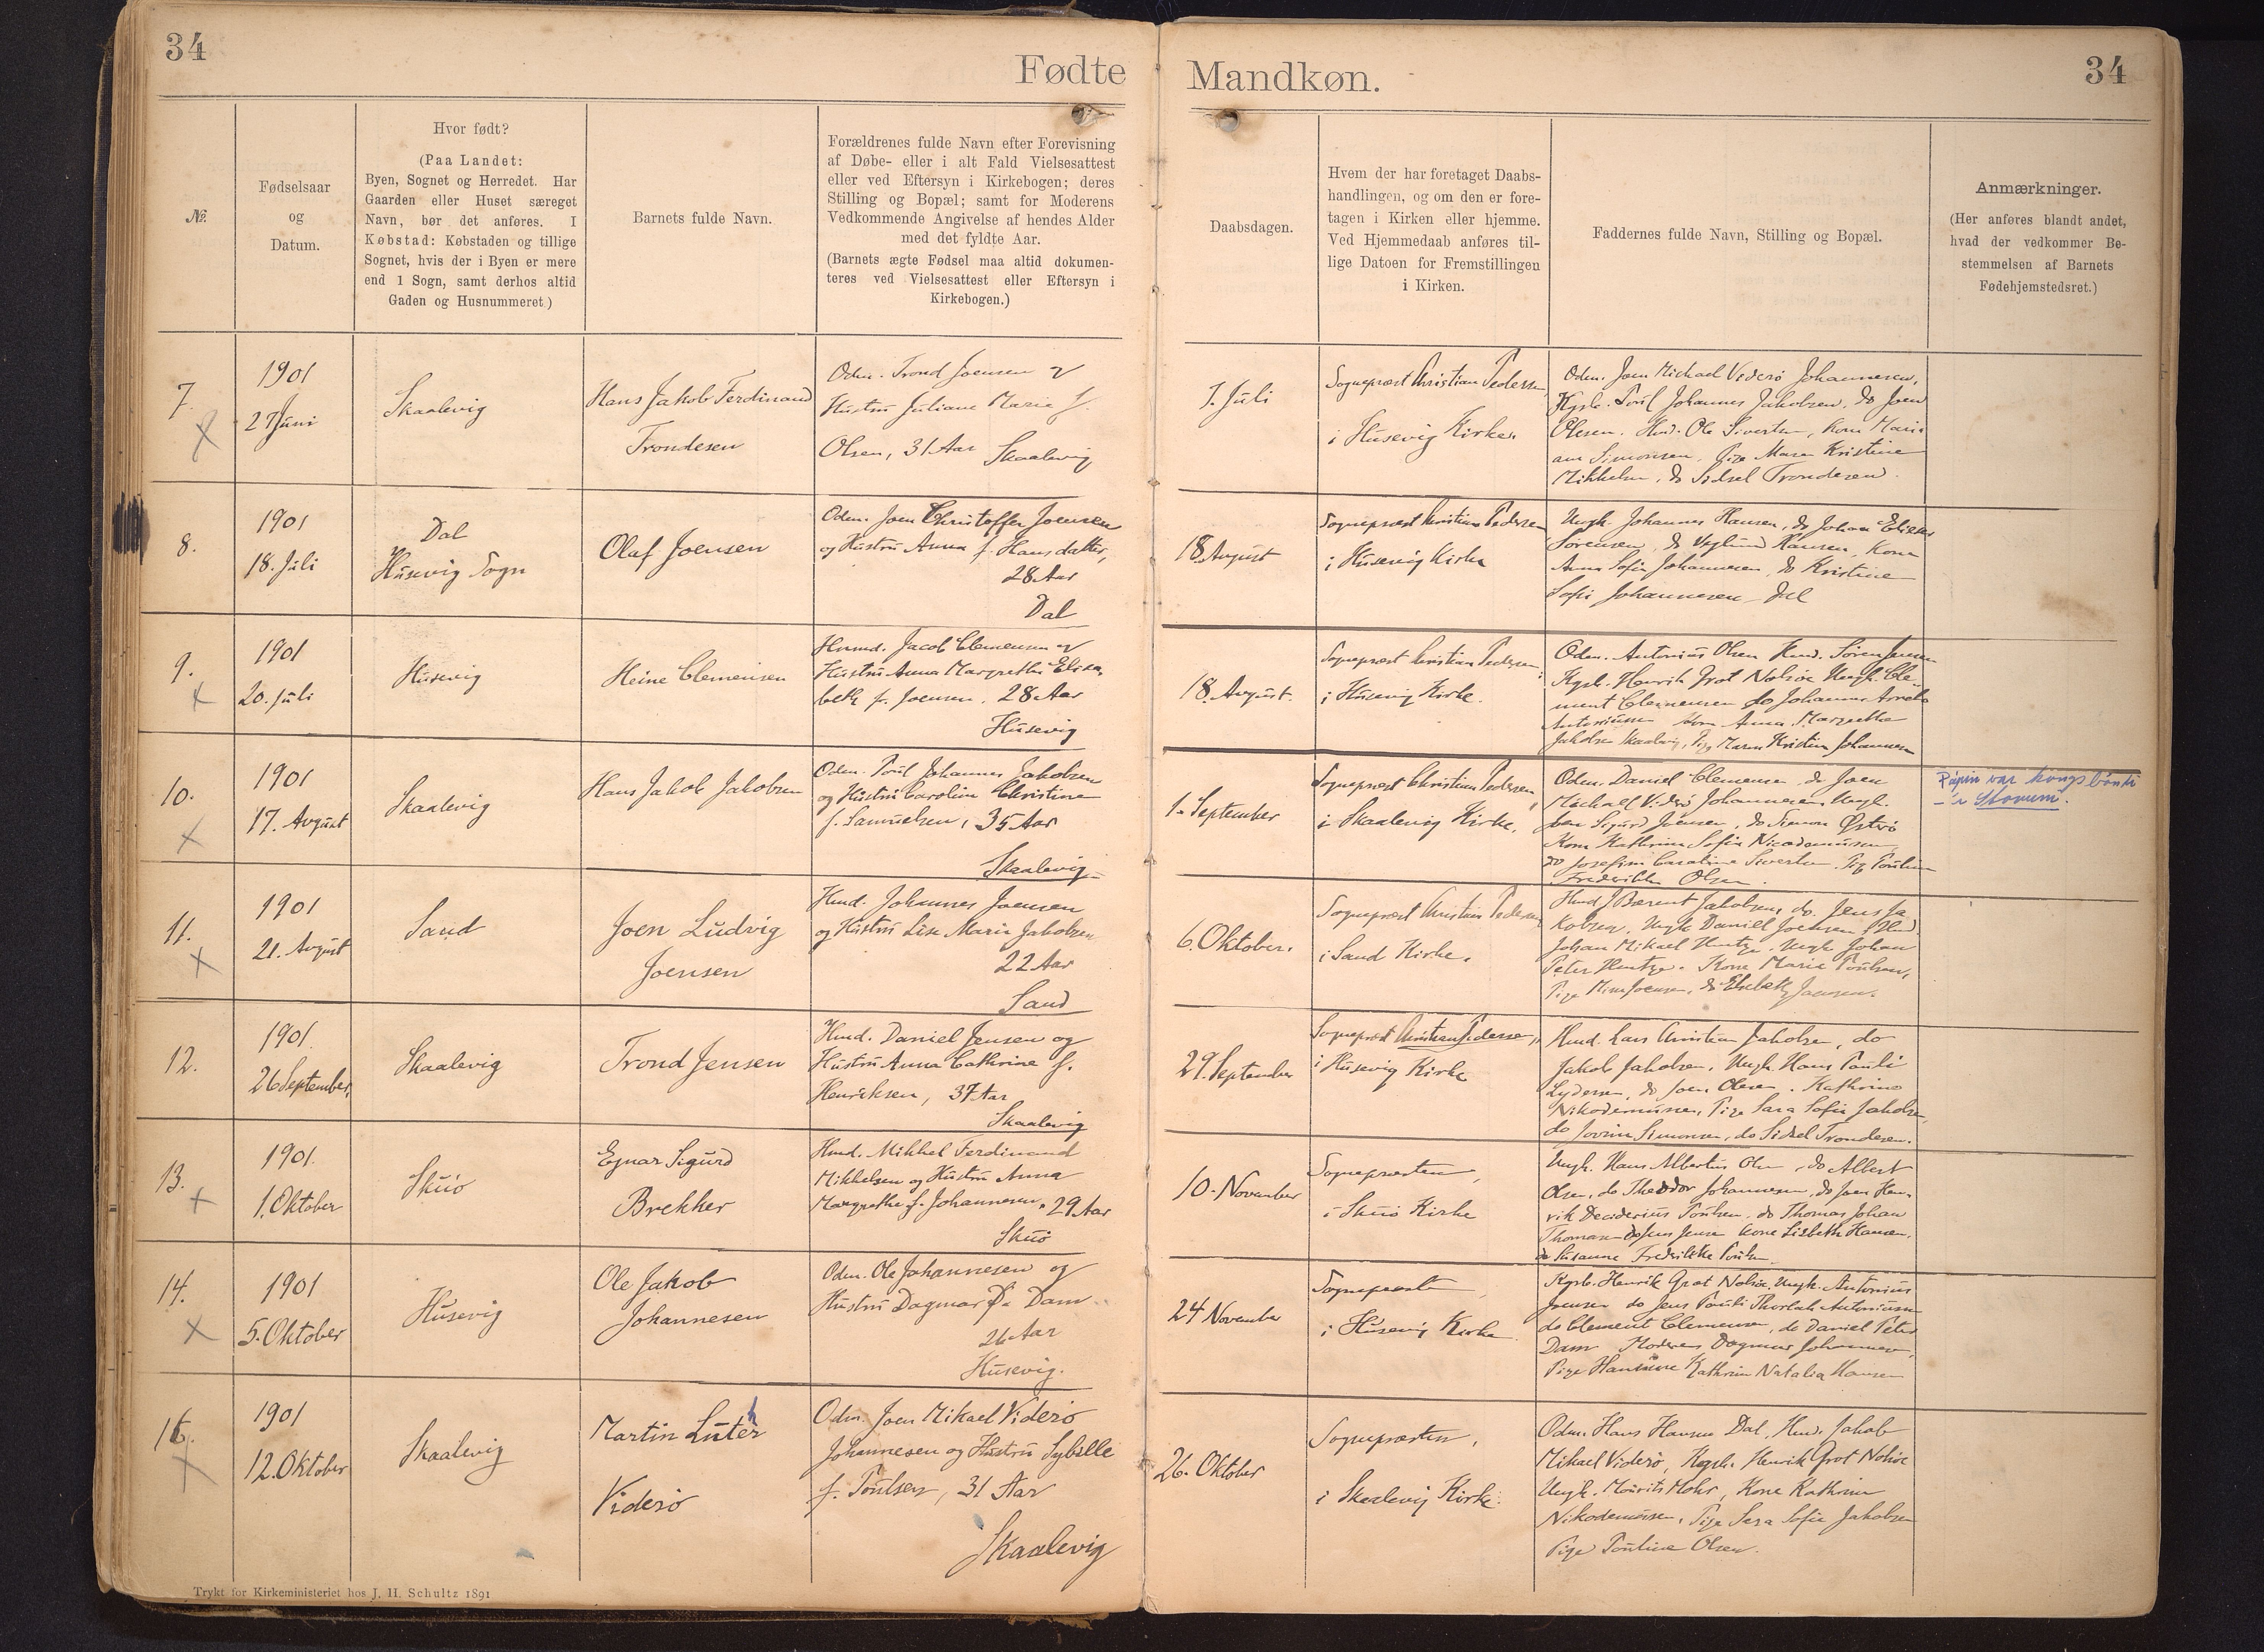 34
Fødte
Mandkøn.
34
№.
Fødselsaar
og
Datum.
Hvor født?
(Paa Landet:
Byen, Sognet og Herredet. Har
Gaarden eller Huset særeget
Navn, bør det anføres. I
Købstad: Købstaden og tillige
Sognet, hvis der i Byen er mere
end 1 Sogn, samt derhos altid
Gaden og Husnummeret)
Barnets fulde Navn.
Forældrenes fulde Navn efter Forevisning
af Døbe- eller i alt Fald Vielsesattest
eller ved Eftersyn i Kirkebogen; deres
Stilling og Bopæl; samt for Moderens
Vedkommende Angivelse af hendes Alder
med det fyldte Aar.
(Barnets ægte Fødsel maa altid dokumen-
teres ved Vielsesattest eller Eftersyn i
Kirkebogen.)
Daabsdagen.
Hvem der har foretaget Daabs-
handlingen, og om den er fore-
tagen i Kirken eller hjemme.
Ved Hjemmedaab anføres til-
lige Datoen for Fremstillingen
i Kirken.
Faddernes fulde Navn, Stilling og Bopæl.
Anmærkninger.
(Her anføres blandt andet,
hvad der vedkommer Be-
stemmelsen af Barnets
Fødehjemstedsret.)
7.
1901
27 Juni
Skaalevig
Hans Jakob Ferdinand
Trondesen
Odm. Trond Joensen og
Hustru Juliane Marie f.
Olsen, 31 Aar Skaalevig
7. Juli
Sognepræst Christian Pedersen
i Husevig Kirke.
Odm. Joen Michael Viderö Johannesen,
Kgsb. Poul Johannes Jakobsen, do Joen
Olesen. Hmd. Ole Sivertsen, Kone Mari-
ane Simonsen, Pige Maren Kristine
Mikkelsen, do Sidsel Trondesen.
8.
1901
18. Juli
Dal
Husevig Sogn
Olaf Joensen
Odm. Joen Christoffer Joensen
og Hustru Anna f. Hansdatter,
28 Aar
Dal
18. August
Sognepræst Christian Pedersen
i Husevig Kirke
Ungk. Johannes Hansen, do Johan Elieser
Sørensen, do Hansen, Kone
Anna Sofie Johannesen, do Kristine
Sofie Johannesen Dal
9.
1901
20. Juli
Husevig
Heine Clemensen
Hmd. Jacob Clemensen og
Hustru Anna Margrethe Elisa-
beth f. Joensen, 28 Aar
Husevig
18. August.
Sognepræst Christian Pedersen,
i Husevig Kirke.
Odm. Antonius Olsen Hmd. Søren Jensen
Kgsb. Henrik Grot Nolsöe Ungk. Cle-
ment Clemensen do Johannes
Antoniussen Kone Anna Margrethe
Jakobsen Skaalevig, Pige Maren Kristine Johannesen
10.
1901
17. August
Skaalevig
Hans Jakob Jakobsen
Odm. Poul Johannes Jakobsen
og Hustru Caroline Christine
f. Samuelsen, 35 Aar
Skaalevig
1. September
Sognepræst Christian Pedersen,
i Skaalevig Kirke.
Odm. Daniel Clemensen do Joen
Michael Viderö Johannesen, Ungk.
Joen Sigurd Joensen, do Simon Øströ
Kone Kathrine Sofie Nicodemussen,
do Josefine Caroline Sivertsen. Pige Pouline
Frederikke Olsen.
Pápin var kongsbóndi
- í Stovum.
11.
1901
21. August
Sand
Joen Ludvig
Joensen
Hmd. Johannes Joensen
og Hustru Lise Marie Jakobsen
22 Aar
Sand
6. Oktober.
Sognepræst Christian Pedersen
i Sand Kirke.
Hmd J Berent Jakobsen, do. Jens Ja-
kobsen, Ungk Daniel Joensen, Hmd.
Johan Mikael Hentze. Ungk Johan
Peter Hentze. Kone Marie Poulsen,
Pige Mina Joensen, do Elsebeth Joensen.
12.
1901.
26 September.
Skaalevig
Trond Jensen
Hmd. Daniel Jensen og
Hustru Anna Cathrine f.
Henriksen, 37 Aar
Skaalevig
29. September
Sognepræst Christian Pedersen,
i Husevig Kirke
Hmd. Lars Christian Jakobsen, do
Jakob Jakobsen, Ungk. Hans Pauli
Lydersen, do Joen Olesen. Kathrine
Nikodemussen, Pige Sara Sofie Jakobsen,
do Jovina Simonsen, do Sidsel Trondesen.
13.
1901.
1. Oktober
Skuö
Ejnar Sigurd
Brekker
Hmd. Mikkel Ferdinand
Mikkelsen og Hustru Anna
Margrethe f. Johannesen, 29 Aar
Skuö
10. November
Sognepræsten,
i Skuö Kirke
Ungk. Hans Albertus Olsen, do Albert
Olsen, do Theodor Johannesen, do Joen Hen-
rik Deciderius Poulsen, do Thomas Johan
Thomasen do Jens Jensen Kone Lisbeth Hansen,
do Susanne Fredrikke Poulsen
14.
1901
5. Oktober
Husevig
Ole Jakob
Johannesen
Odm. Ole Johannesen og
Hustru Dagmar f. Dam
26 Aar
Husevig.
24 November
Sognepræsten,
i Husevig Kirke.
Kgsb. Henrik Grot Nolsöe. Ungk. Antonius
Joensen do Jens Pauli Thorlak Antoniussen
do Clement Clemensen, do Daniel Peter
Dam Moderen Dagmar Johannesen,
Pige Hansine Kathrine Natalia Hansen
15.
1901
12. Oktober
Skaalevig
Martin Luther
Viderö
Odm. Joen Mikael Viderö
Johannesen og Hustru Sybille
f. Poulsen, 31 Aar
Skaalevig
26. Oktober
Sognepræsten,
i Skaalevig Kirke.
Odm. Hans Hansen Dal, Hmd. Jakob
Mikael Viderö, Kgsb. Henrik Grot Nolsöe
Ungk. Mourits Mohr, Kone Kathrine
Nikodemussen, Pige Sara Sofie Jakobsen
Pige Pouline Olsen.
Trykt for Kirkeministeriet hos J. H. Schultz 1891